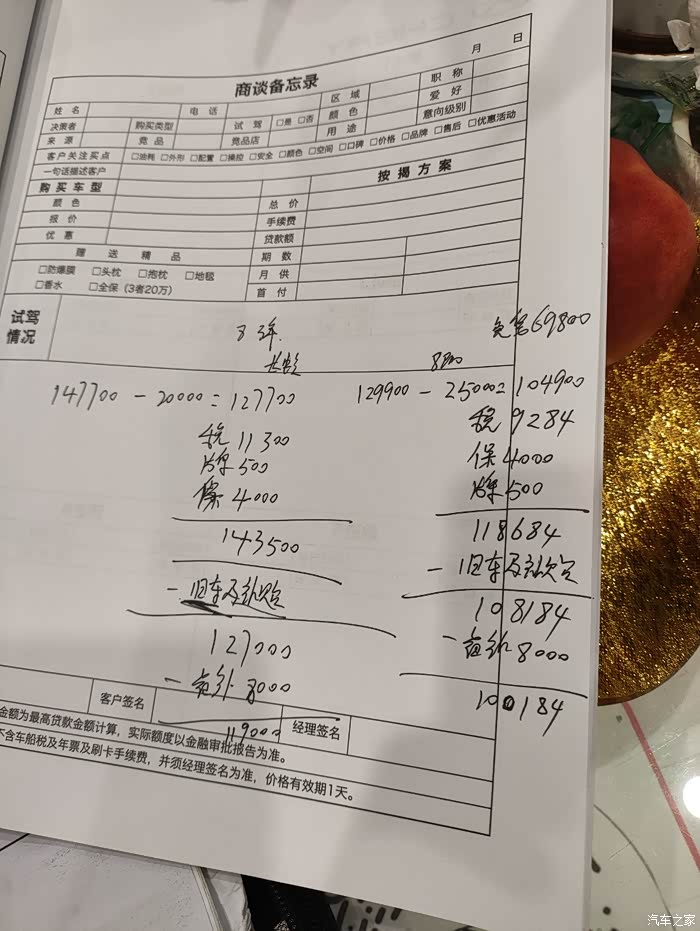 商谈备忘录
月 日
姓名 电话 区域 职称
决策者 购买类型 试驾 □是 □否 颜色 爱好
来源 竞品 竞品店 用途 意向级别
客户关注买点 □油耗 □外形 □配置 □操控 □安全 □颜色 □空间 □口碑 □价格 □品牌 □售后 □优惠活动
一句话描述客户
购买车型 按揭方案
颜色 总价
报价 手续费
优惠 贷款额
赠送精品 期数
□防爆膜 □头枕 □抱枕 □地毯 月供
□香水 □全保（3者20万） 首付
试驾情况
3年. 69800
147700 - 20000 = 127700
税 11300
牌 500
保 4000
143500
- 旧车及补贴
127000
- 8000
119000
129900 - 25000 = 104900
税 9284
保 4000
牌 500
118684
- 旧车及
108184
- 8000
100184
客户签名 经理签名
金额为最高贷款金额计算，实际额度以金融审批报告为准。
不含车船税及年票及刷卡手续费，并须经理签名为准，价格有效期1天。
汽车之家